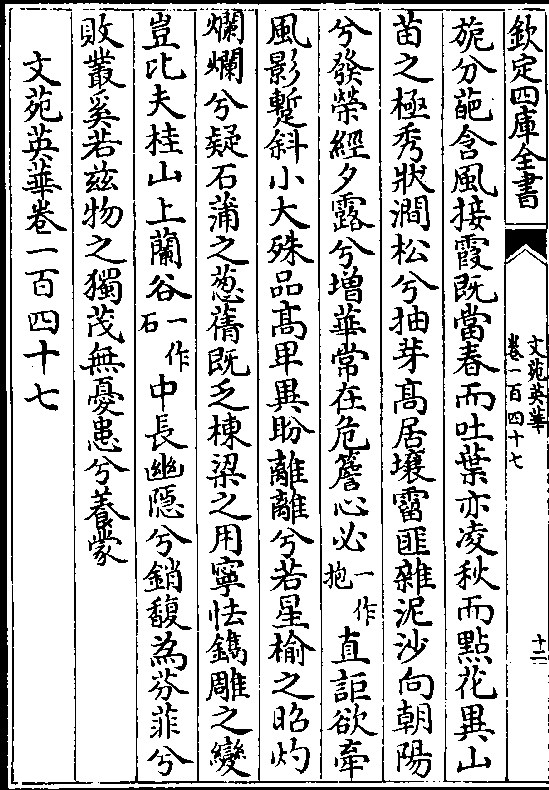 欽定四庫全書
文苑英華
卷一百四十七
十二
旎分葩含風接霞既當春而吐葉亦凌秋而點花異山
苗之極秀狀澗松兮抽芽髙居壤霤匪雜泥沙向朝陽
兮發榮經夕露兮增華常在危簷心必一作抱直詎欲牽
風影蹔斜小大殊品髙卑異盼離離兮若星榆之昭灼
爛爛兮疑石蒲之葱蒨既乏棟梁之用寧怯鐫雕之變
豈比夫桂山上蘭谷一作石中長幽隠兮銷馥為芬菲兮
敗叢奚若茲物之獨茂無憂患兮養蒙
文苑英華卷一百四十七